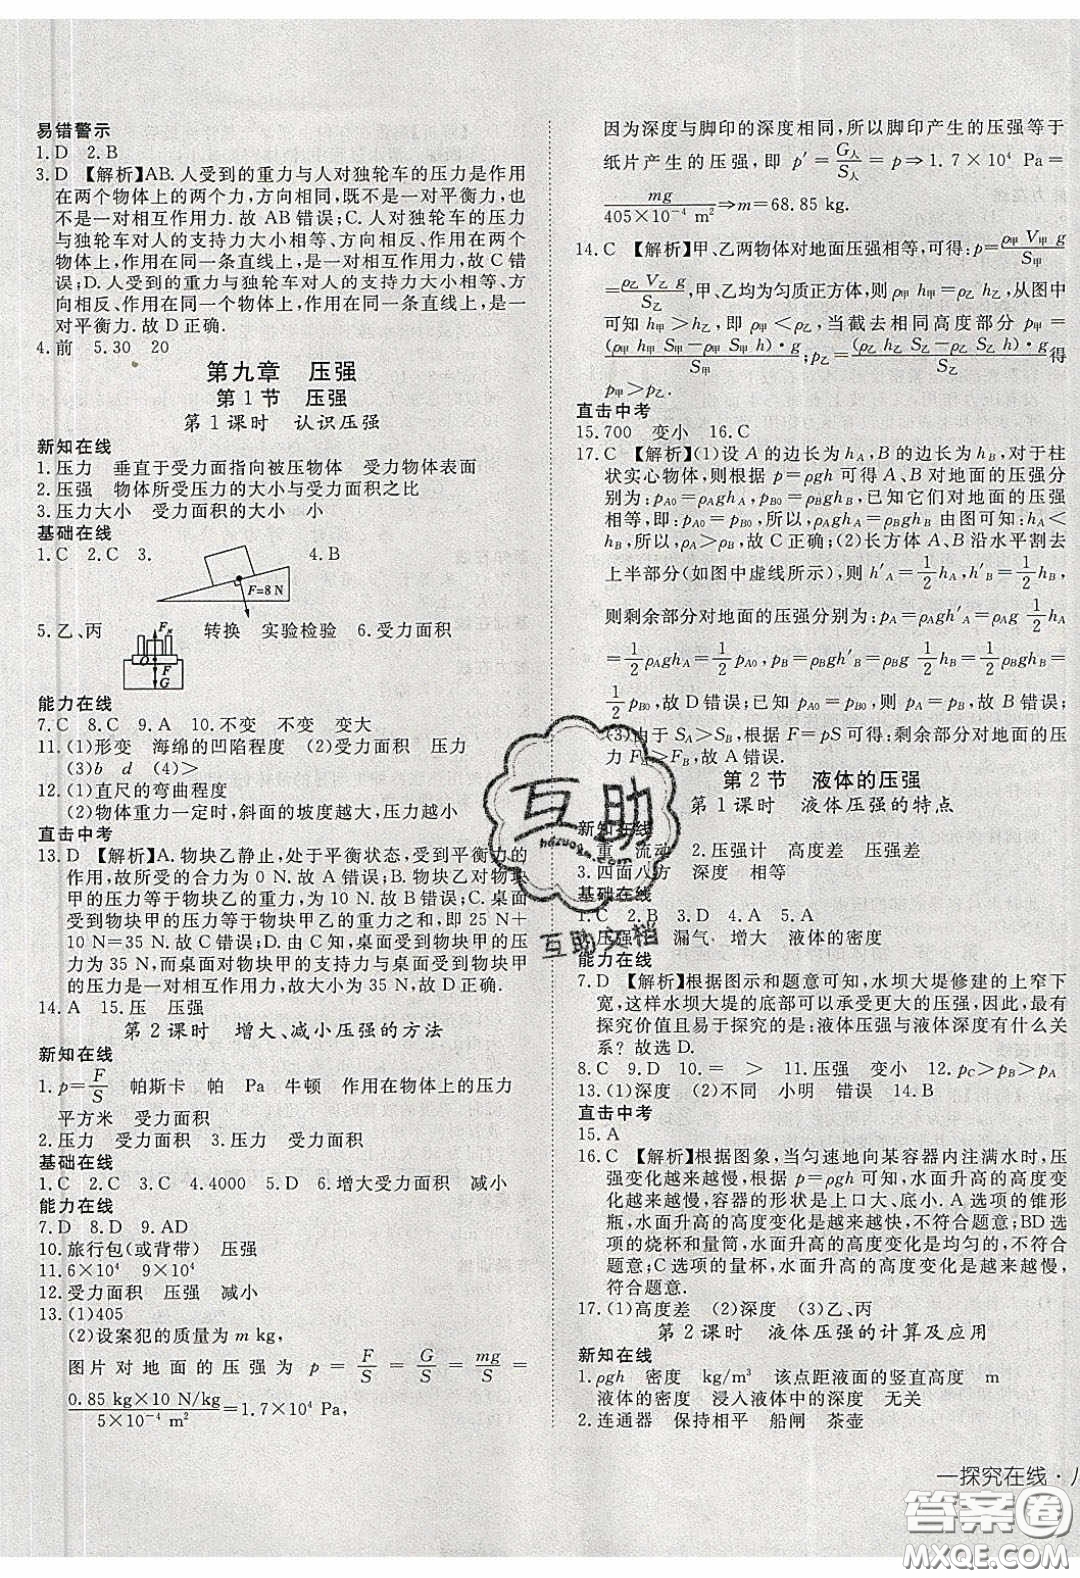 易错警示
1.D 2.B
3.D 【解析】AB.人受到的重力与人对独轮车的压力是作用
在两个物体上的两个力,方向相同,既不是一对平衡力,也
不是一对相互作用力.故 AB 错误;C.人对独轮车的压力
与独轮车对人的支持力大小相等、方向相反、作用在两个
物体上,作用在同一条直线上,是一对相互作用力,故 C 错
误;D.人受到的重力与独轮车对人的支持力大小相等、方
向相反、作用在同一个物体上,作用在同一条直线上,是一
对平衡力.故 D 正确.
4.前 5.30 20
第九章 压强
第 1 节 压强
第 1 课时 认识压强
新知在线
1.压力 垂直于受力面指向被压物体 受力物体表面
2.压强 物体所受压力的大小与受力面积之比
3.压力大小 受力面积的大小 小
基础在线
1.C 2.C 3. 4.B
F=8 N
5.乙、丙 转换 实验检验 6.受力面积
O F G
能力在线
7.C 8.C 9.A 10.不变 不变 变大
11.(1)形变 海绵的凹陷程度 (2)受力面积 压力
(3)b d (4)>
12.(1)直尺的弯曲程度
(2)物体重力一定时,斜面的坡度越大,压力越小
直击中考
13.D 【解析】A.物块乙静止,处于平衡状态,受到平衡力的
作用,故所受的合力为 0 N.故 A 错误;B.物块乙对物块
甲的压力等于物块乙的重力,为 10 N.故 B 错误;C.桌面
受到物块甲的压力等于物块甲乙的重力之和,即 25 N+
10 N=35 N.故 C 错误;D.由 C 知,桌面受到物块甲的压
力为 35 N,而桌面对物块甲的支持力与物块甲对桌面的
压力是一对相互作用力,大小相等,也为 35 N.故 D 正确.
14.A 15.压 压强
第 2 课时 增大、减小压强的方法
新知在线
1.p=F/S 帕斯卡 帕 Pa 牛顿 作用在物体上的压力
平方米 受力面积
2.压力 受力面积 3.压力 受力面积
基础在线
1.C 2.C 3.C 4.4000 5.D 6.增大受力面积 减小
能力在线
7.D 8.D 9.AD
10.旅行包(或背带) 压强
11.6×10⁴ 9×10⁴
12.受力面积 压强 减小
13.(1)405
(2)设案犯的质量为 m kg,
图片对地面的压强为 p = F/S = G/S = mg/S =
0.85 kg×10 N/kg / 5×10⁻⁴ m² =1.7×10⁴ Pa,
因为深度与脚印的深度相同,所以脚印产生的压强等于
纸片产生的压强,即 p′=G人/S人=p⇒1.7×10⁴ Pa=
mg / 405×10⁻⁴ m² ⇒m=68.85 kg.
14.C 【解析】甲、乙两物体对地面压强相等,可得:p=ρ甲 V甲 g/S甲
=ρ乙 V乙 g/S乙,甲、乙均为匀质正方体,则 ρ甲 h甲=ρ乙 h乙,从图中
可知 h甲>h乙,即 ρ甲<ρ乙,当截去相同高度部分 p甲=
(ρ甲 h甲 S甲−ρ甲 S甲 h)·g/S甲;p乙=(ρ乙 h乙 S乙−ρ乙 S乙 h)·g/S乙 得
p甲>p乙.
直击中考
15.700 变小 16.C
17.C 【解析】(1)设 A 的边长为 hA,B 的边长为 hB,对于柱
状实心物体,则根据 p=ρgh 可得 A、B 对地面的压强分
别为:pA0=ρAghA,pB0=ρBghB,已知它们对地面的压强
相等,即:pA0=pB0,所以,ρAghA=ρBghB 由图可知:hA<
hB,所以,ρA>ρB,故 C 正确;(2)长方体 A、B 沿水平割去
上半部分(如图中虚线所示),则 h′A=1/2hA,h′B=1/2hB,
则剩余部分对地面的压强分别为:pA=ρAgh′A=ρAg 1/2hA
=1/2ρAghA=1/2pA0,pB=ρBgh′B=ρBg 1/2hB=1/2ρBghB=
1/2pB0,故 D 错误;因为 pA0=pB0,所以,pA=pB,故 B 错误;
(3)由于 SA>SB,根据 F=pS 可得:剩余部分对地面的压
力 FA>FB,故 A 错误.
第 2 节 液体的压强
第 1 课时 液体压强的特点
新知在线
1.重 流动 2.压强计 高度差 压强差
3.四面八方 深度 相等
基础在线
1.C 2.B 3.D 4.A 5.A
6.压强计 漏气 增大 液体的密度
能力在线
7.D 【解析】根据图示和题意可知,水坝大堤修建的上窄下
宽,这样水坝大堤的底部可以承受更大的压强,因此,最有
探究价值且易于探究的是:液体压强与液体深度有什么关
系?故选 D.
8.C 9.D 10.= > 11.变小 12.pC>pB>pA
13.(1)深度 (2)不同 小明 错误 14.B
直击中考
15.A
16.C 【解析】根据图象,当匀速地向某容器内注满水时,压
强变化越来越慢,根据公式 p=ρgh 可知,水面升高的高度
变化越来越慢,容器的形状是上口大、底小.A 选项的锥形
瓶,水面升高的高度变化是越来越快,不符合题意;BD 选
项的烧杯和量筒,水面升高的高度变化是均匀的,不符合
题意;C 选项的量杯,水面升高的高度变化是越来越慢,
符合题意.
17.(1)高度差 (2)深度 (3)乙、丙
第 2 课时 液体压强的计算及应用
新知在线
1.ρgh 密度 kg/m³ 该点距液面的竖直高度 m
液体的密度 浸入液体中的深度 无关
2.连通器 保持相平 船闸 茶壶
一探究在线·八
互助
hdzuoye.com
互助文档
答案圈
MXQE.COM